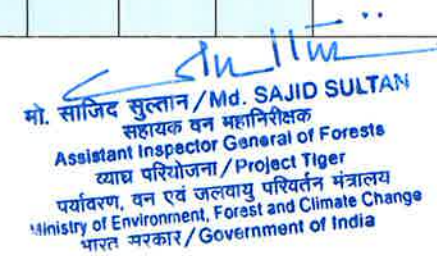 मो. साजिद सुल्तान/Md. SAJID SULTAN
सहायक वन महानिरीक्षक
Assistant Inspector General of Forests
व्याघ्र परियोजना/Project Tiger
पर्यावरण, वन एवं जलवायु परिवर्तन मंत्रालय
Ministry of Environment, Forest and Climate Change
भारत सरकार/Government of India